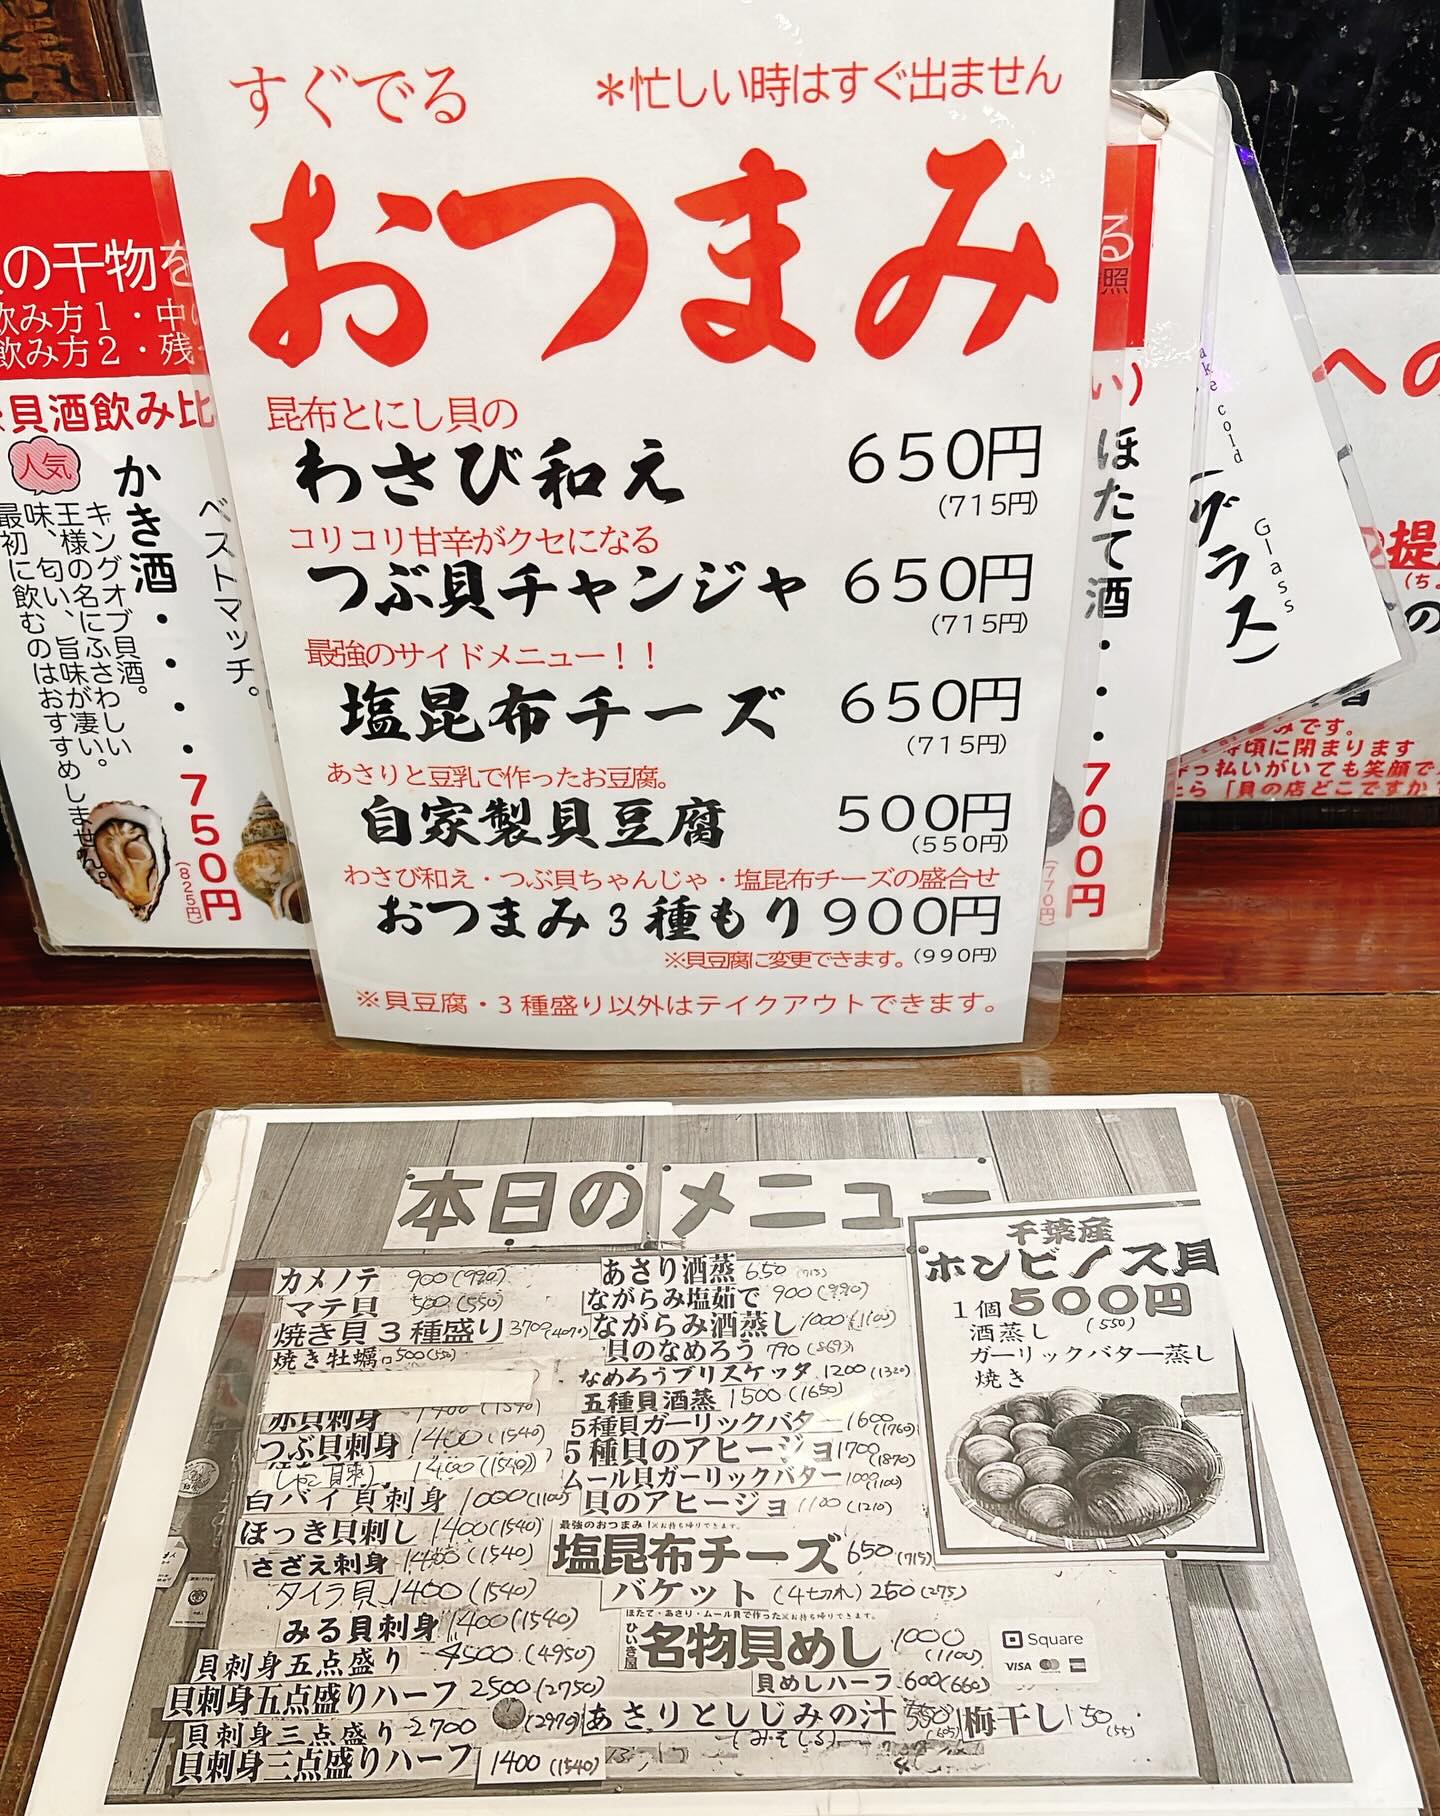 すぐでる
＊忙しい時はすぐ出ません
おつまみ
昆布とにし貝の
わさび和え 650円
(715円)
コリコリ甘辛がクセになる
つぶ貝チャンジャ 650円
(715円)
最強のサイドメニュー！！
塩昆布チーズ 650円
(715円)
あさりと豆乳で作ったお豆腐。
自家製貝豆腐 500円
(550円)
わさび和え・つぶ貝ちゃんじゃ・塩昆布チーズの盛合せ
おつまみ3種もり 900円
※貝豆腐に変更できます。(990円)
※貝豆腐・3種盛り以外はテイクアウトできます。
の干物を
飲み方1・中
飲み方2・残
貝酒飲み比
人気
かき酒・・・・750円
(825円)
キングオブ貝酒。
王様の名にふさわしい
味、匂い、旨味が凄い。
最初に飲むのはおすすめしません。
ベストマッチ。
る
照
い)
ほたて酒・・・700円
(770円)
ake cold
Glass
グラス)
への
提
みです。
時頃に閉まります
っ払いがいても笑顔で
たら「貝の店どこですか
本日のメニュー
カメノテ 900(990)
マテ貝 500(550)
焼き貝3種盛り 3700(4070)
焼き牡蠣 500(550)
赤貝刺身 1400(1540)
つぶ貝刺身 1400(1540)
1400(1540)
白バイ貝刺身 1000(1100)
ほっき貝刺し 1400(1540)
さざえ刺身 1400(1540)
タイラ貝 1400(1540)
みる貝刺身 1400(1540)
貝刺身五点盛り 4500(4950)
貝刺身五点盛りハーフ 2500(2750)
貝刺身三点盛り 2700 (2970)
貝刺身三点盛りハーフ 1400(1540)
あさり酒蒸 650(715)
ながらみ塩茹で 900(990)
ながらみ酒蒸し 1000(1100)
貝のなめろう 790(869)
なめろうブリスケッタ 1200(1320)
五種貝酒蒸 1500(1650)
5種貝ガーリックバター 1600(1760)
5種貝のアヒージョ 1700(1870)
ムール貝ガーリックバター 1000(1100)
貝のアヒージョ 1100(1210)
最強のおつまみ!※お持ち帰りできます。
塩昆布チーズ 650(715)
バケット(4切れ) 250(275)
ほたて・あさり・ムール貝で作った※お持ち帰りできます。
ひいき屋 名物貝めし 1000(1100)
貝めしハーフ 600(660)
あさりとしじみの汁 550(605)
(みそしる)
梅干し 50(55)
千葉産
ホンビノス貝
1個500円
(550)
酒蒸し
ガーリックバター蒸し
焼き
Square
VISA